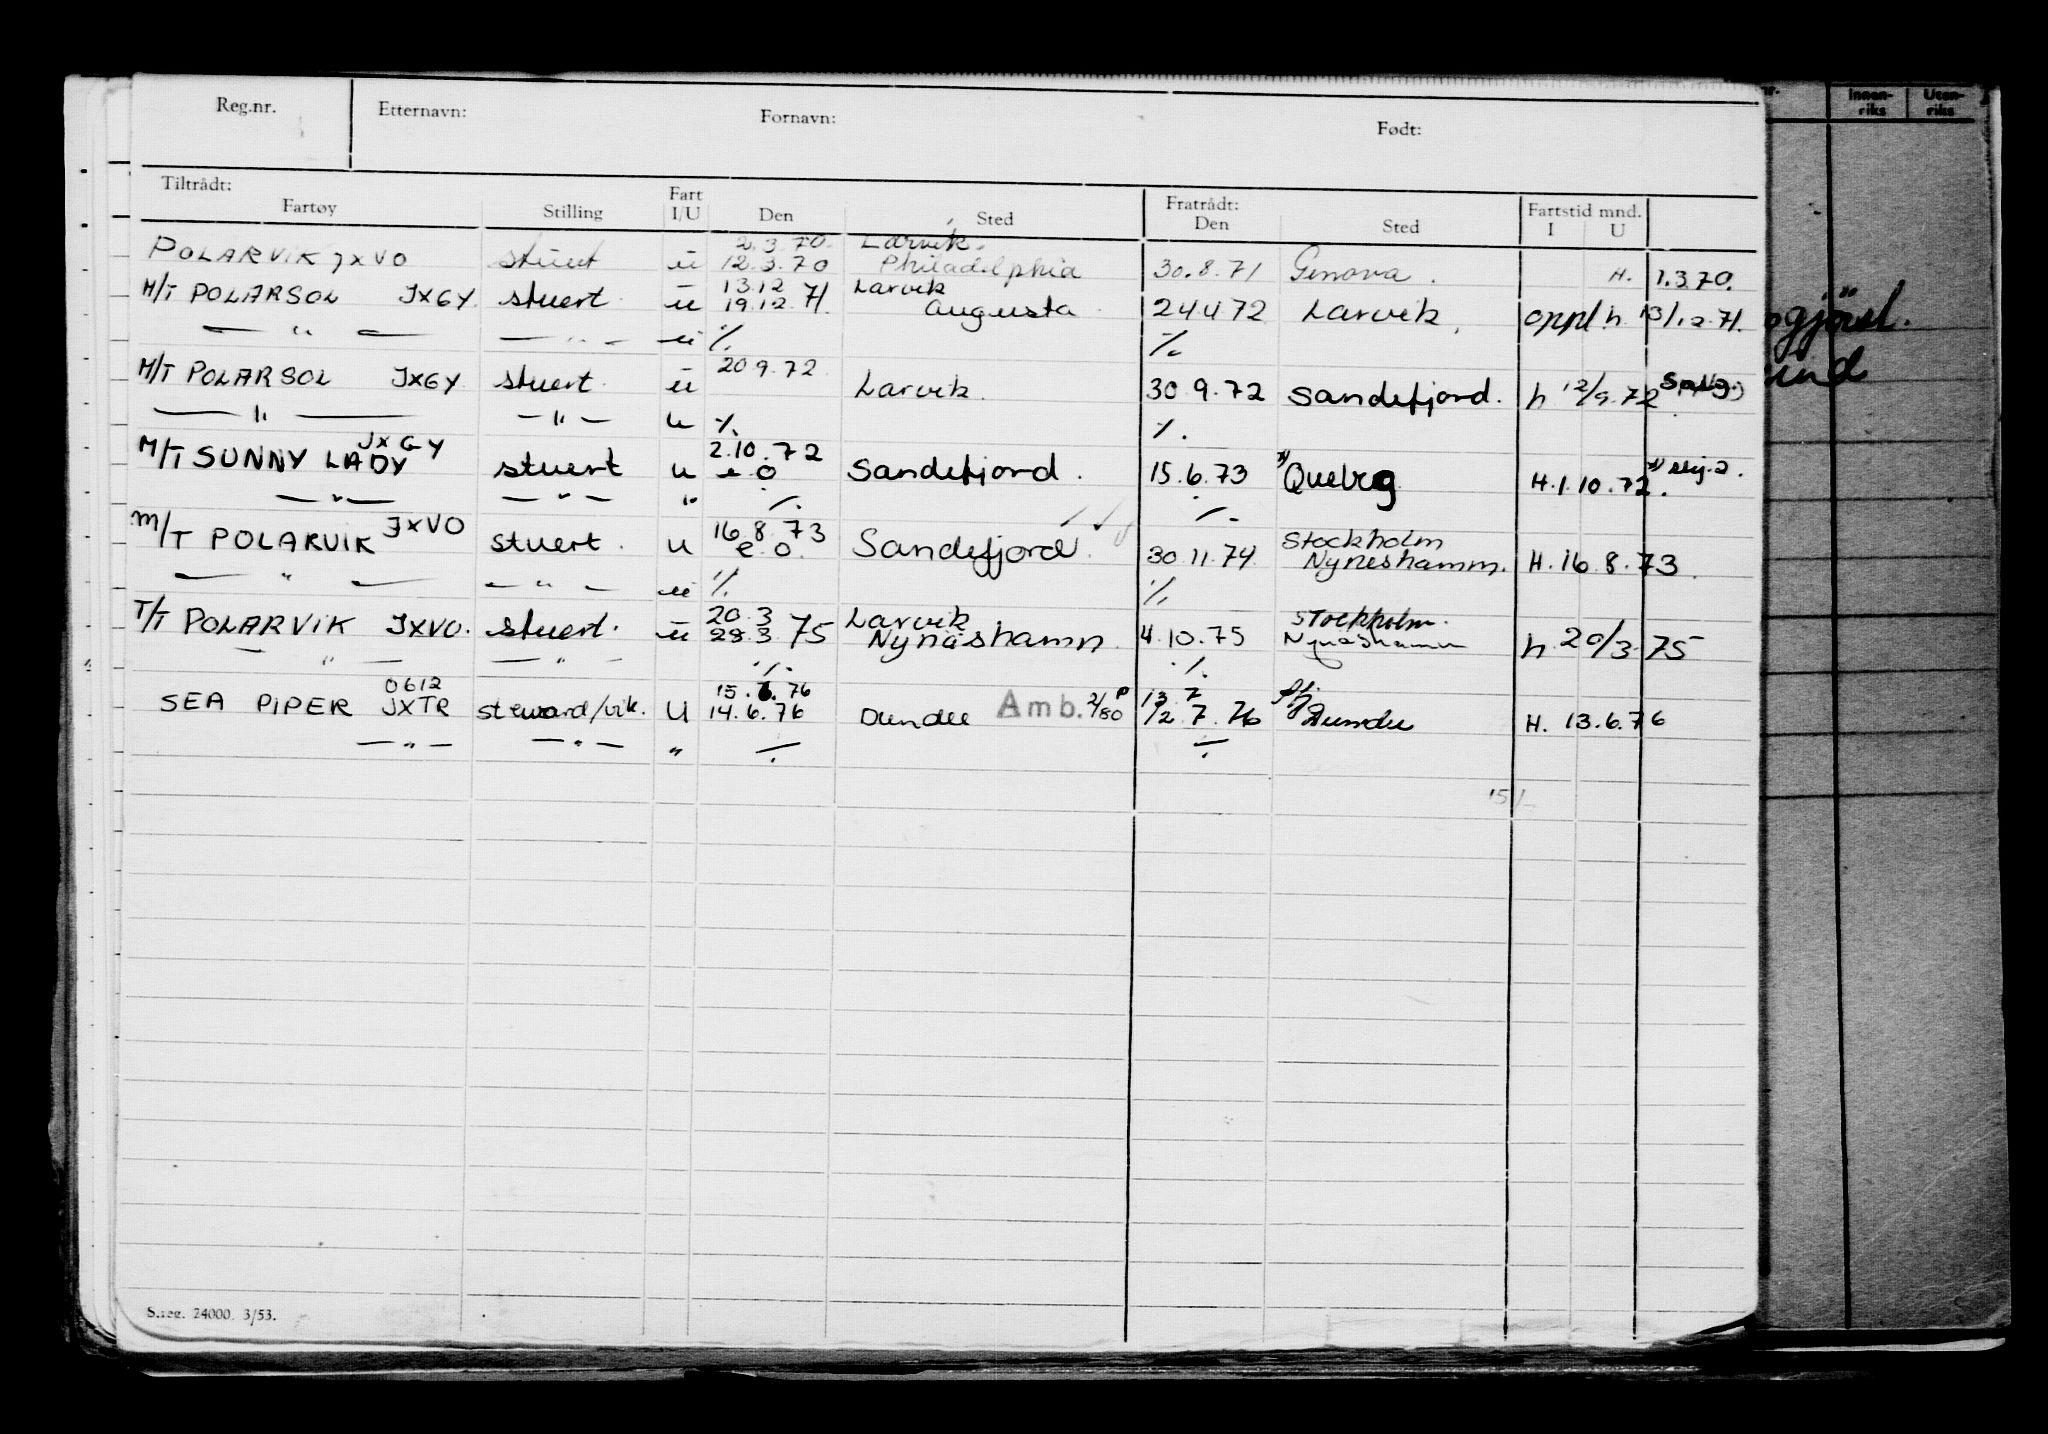 Reg.nr. Etternavn: Fornavn: Født:
Tiltrådt: Fratrådt:
Fartøy Stilling Fart I/U Den Sted Den Sted Fartstid mnd. I U
2.3.70. Larvik.
POLARVIK JXVO stuert u 12.3.70 Philadelphia 30.8.71 Genova. H. 1.3.70.
13.12 Larvik
M/T POLARSOL JXGY. stuert u 19.12.71. Augusta 24.4.72 Larvik. oppl. h. 13/12.71.
— " — — " — u ·/. ·/.
20.9.72.
M/T POLARSOL JXGY stuert. u Larvik. 30.9.72 Sandefjord. h 12/9.72
— " — — " — u ·/. ·/.
JXGY 2.10.72
M/T SUNNY LADY stuert u e.o Sandefjord. 15.6.73 H.1.10.72.
— " — — " — " ·/. ·/.
JXVO 16.8.73 Stockholm
M/T POLARVIK stuert. u e.o. Sandefjord. 30.11.74. Nyneshamn. H. 16.8.73.
— " — — " — u ·/. ·/.
20.3 Larvik Stockholm.
T/T POLARVIK JXVO. stuert. u 28.3.75 Nynäshamn. 4.10.75 Nynäshamn h 20/3 75
— " — — " — ·/. ·/.
0612 15.6.76 13 7
SEA PIPER JXTR steward/vik. U 14.6.76 Dundee Amb. 2/80 12.7.76 Dundee H. 13.6.76
— " — — " — " ·/. ·/.
S.reg. 24000. 3/53.
Innen-riks Uten-riks